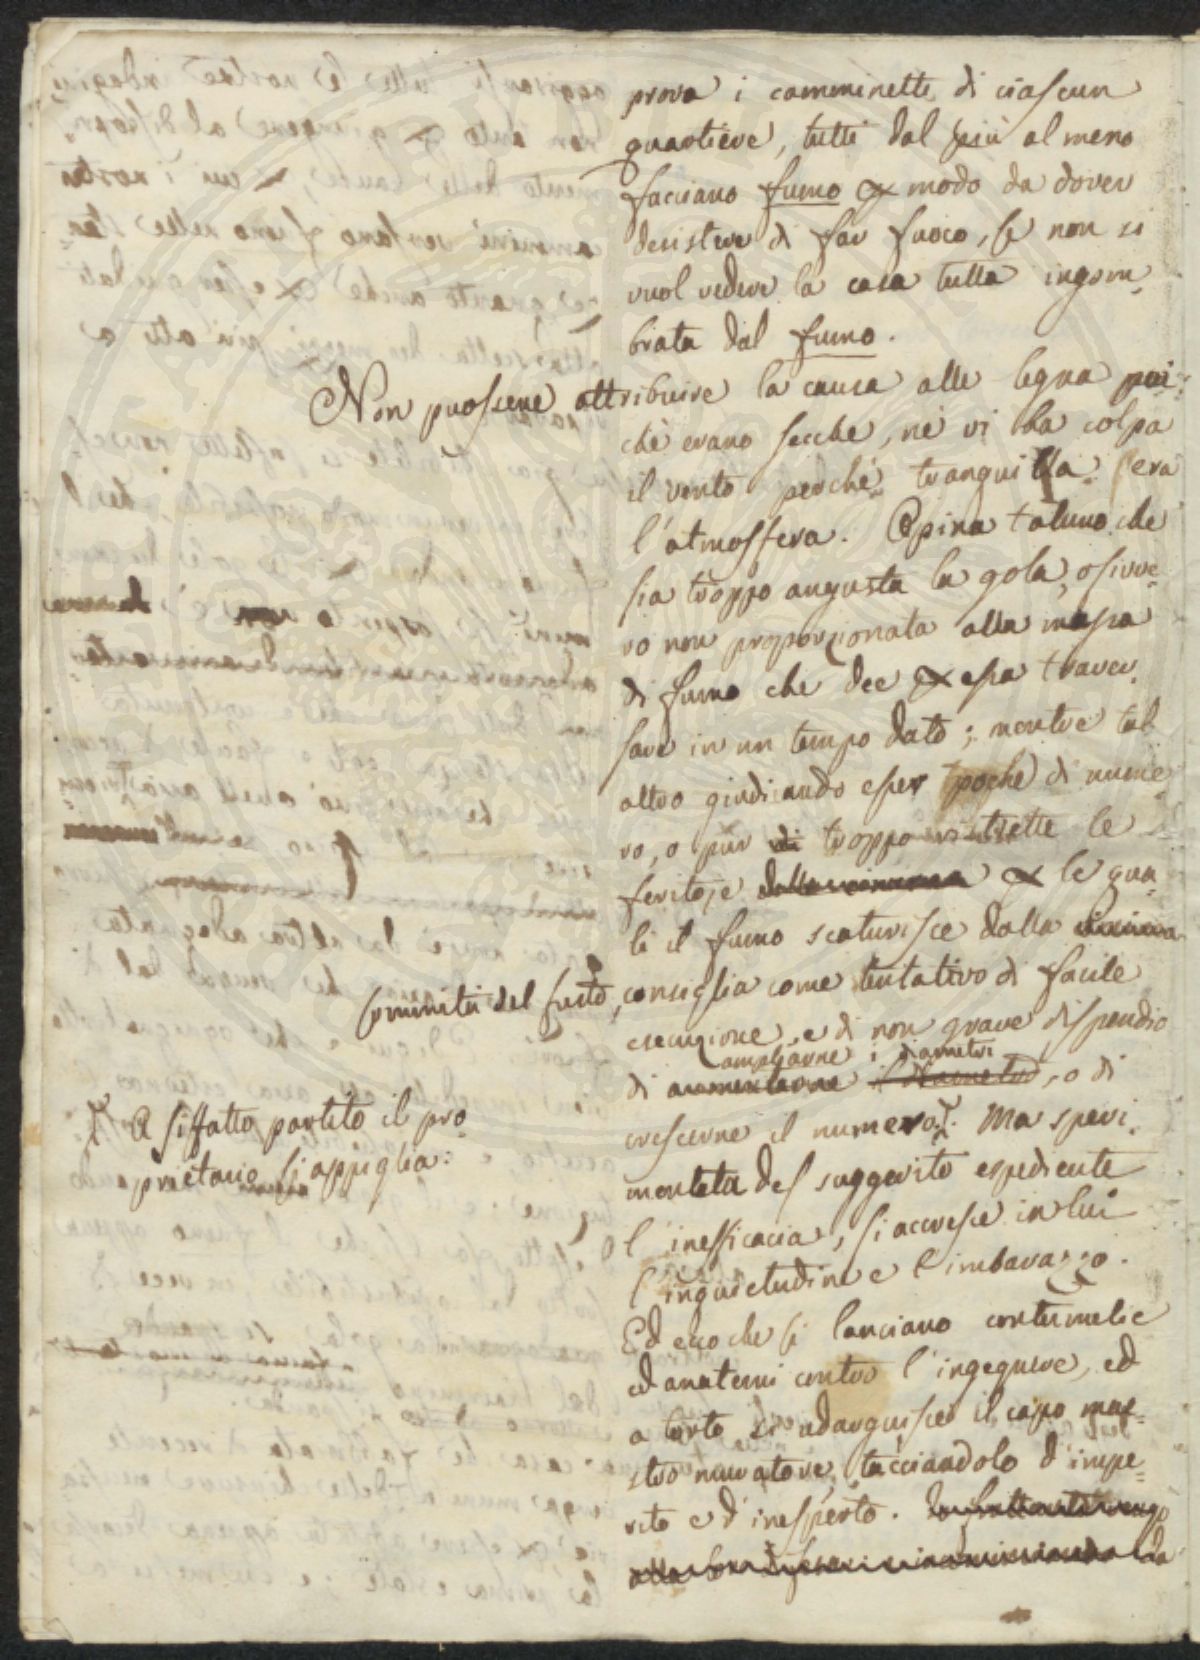 prova i camminetti di ciascun
quartiere, tutti dal più al meno
facciano fumo p modo da dover
desistere di far fuoco, se non si
vuol vedere la casa tutta ingom-
brata dal fumo.
Non puossene attribuire la causa alle legna poi-
chè erano secche, nè vi ha colpa
il vento perchè tranquilla era
l'atmosfera. Opina taluno che
sia troppo angusta la gola, ossivve-
ro non proporzionata alla massa
di fumo che dee p essa traver-
sare in un tempo dato; mentre tal
altro giudicando esser poche di nume-
ro, o pur di troppo ristrette le
feritoje p le qua-
li il fumo scaturisce dalla
sommità del fusto, consiglia come tentativo di facile
esecuzione, e di non grave dispendio
ampliarne i diametri
di aumentarne il diametro, o di
crescerne il numero. Ma speri-
mentata del suggerito espediente
l'inefficacia, si accresce in lui
l'inquietudine e l'imbarazzo.
Ed ecco che si lanciano contumelie
ed anatemi contro l'ingegnere, ed
a torto si redarguisce il capo mas-
stro muratore, tacciandolo d'impe-
rito e d'inesperto.
A siffatto partito il pro-
prietario si appiglia: